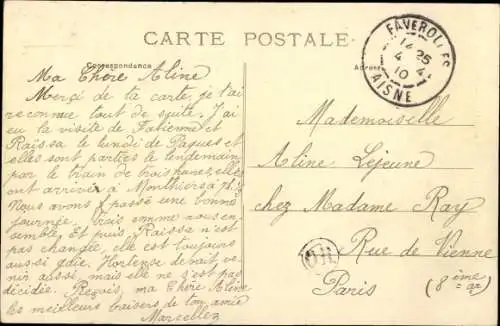 CARTE POSTALE
Correspondance
Adresse
FAVEROLLES
14 25
4 4
10
AISNE
Ma Chère Aline
Merci de ta carte, je t'ai
reconnue tout de suite. J'ai
eu la visite de Fabienne et
Raissa le lundi de Pâques et
elles sont parties le lendemain
par le train de trois heures, elles
ont arrivé à Monthiers à 7h
Nous avons passé une bonne
journée. Trais comme nous en-
semble. Et puis Raissa n'est
pas changée, elle est toujours
aussi gaie. Hortense devait ve-
nir aussi, mais elle ne s'est pas
décidée. Reçois, ma Chère Aline
les meilleurs baisers de ton amie
Marcelle
Mademoiselle
Aline Lejeune
chez Madame Ray
OR
Rue de Vienne
Paris (8ème ar)